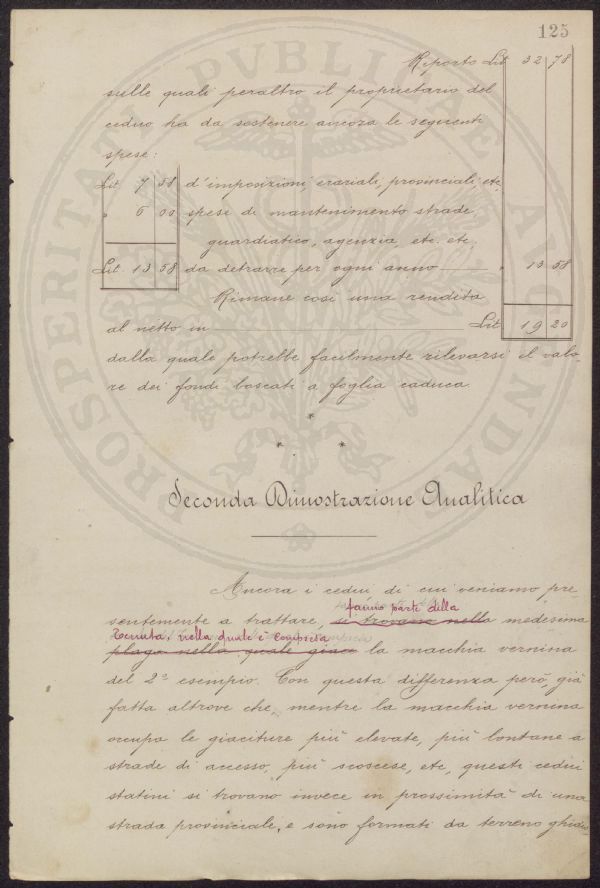 125
Riporto Lit 32 78
sulle quali peraltro il proprietario del
ceduo ha da sostenere ancora le seguenti
spese:
Lit. 7 58 d'imposizioni erariali, provinciali, etc.
" 6 00 spese di mantenimento strade,
guardiatico, agenzia, etc. etc.
Lit. 13 58 da detrarre per ogni anno " 13 58
Rimane così una rendita
al netto in Lit 19 20
dalla quale potrebbe facilmente rilevarsi il valo-
re dei fondi boscati a foglia caduca.
*
* *
Seconda Dimostrazione Analitica
Ancora i cedui di cui veniamo pre
fanno parte della
sentemente a trattare, si trovano nella medesima
Tenuta, nella quale è compresa
plaga nella quale giace la macchia vernina
del 2º esempio. Con questa differenza però, già
fatta altrove che, mentre la macchia vernina
occupa le giaciture più elevate, più lontane a
strade di accesso, più scoscese, etc, questi cedui
statini si trovano invece in prossimità di una
strada provinciale, e sono formati da terreno ghiaio-
PROSPERITATI PVBLICAE AVGENDAE